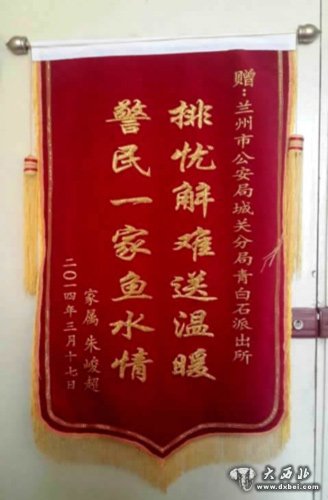 赠：兰州市公安局城关分局青白石派出所
排忧解难送温暖
警民一家鱼水情
家属 朱峻超
二〇一四年三月十七日
大西北
www.dxbei.com